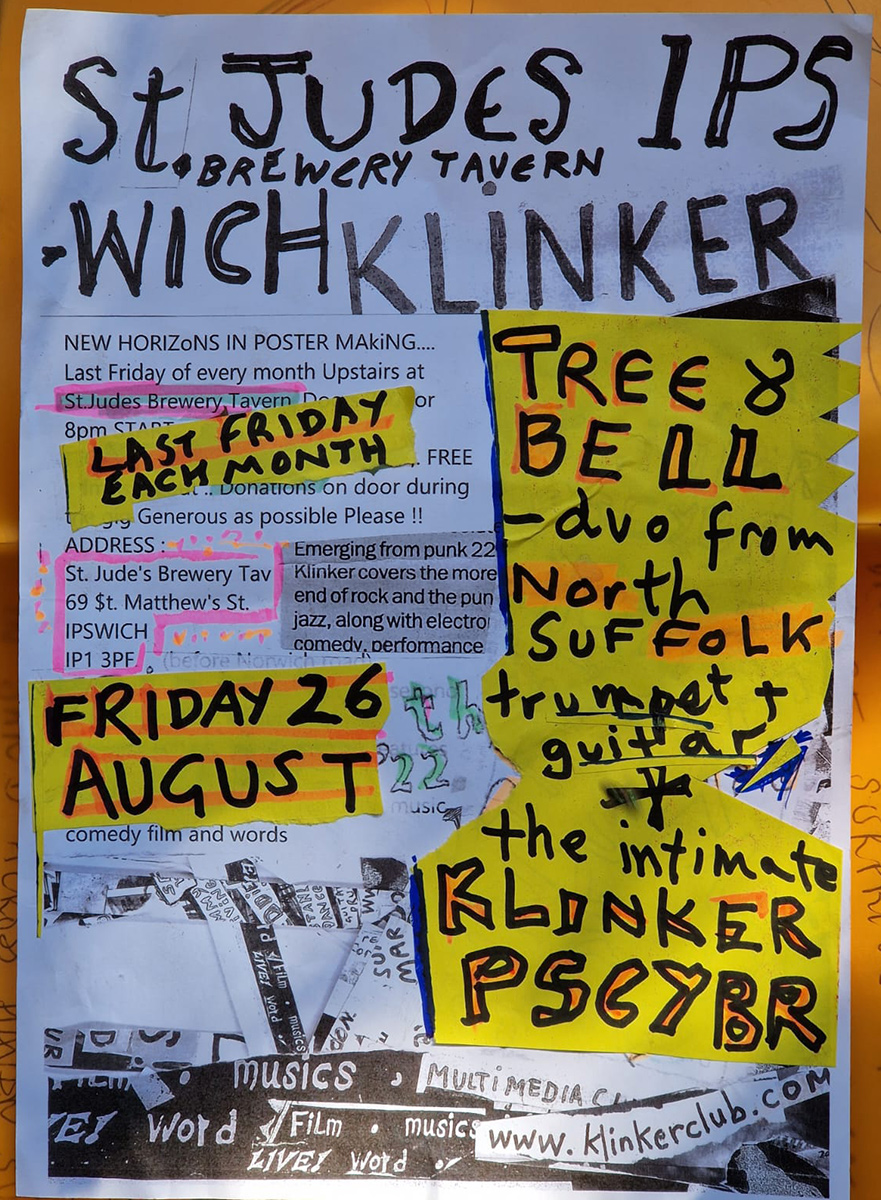 St. JUDES IPS
BREWERY TAVERN
-WICH KLiNKER
NEW HORIZoNS IN POSTER MAkiNG....
Last Friday of every month Upstairs at
St.Judes Brewery Tavern
or
8pm START
LAST FRIDAY
EACH MONTH
. FREE
.. Donations on door during
Generous as possible Please !!
ADDRESS :
St. Jude's Brewery Tav
69 $t. Matthew's St.
IPSWICH
IP1 3PF
(before Norwich road)
Emerging from punk 22
Klinker covers the more
end of rock and the pun
jazz, along with electron
comedy, performance
FRIDAY 26
th
AUGUST
22
music
comedy film and words
TREE &
BELL
-duo from
North
SUFFOLK
trumpet +
guitar
the intimate
KLINKER
PSCYBR
musics
MULTiMEDIA C
FiLM
LIVE! Word FiLm . musics
LIVE! Word
www.klinkerclub.com